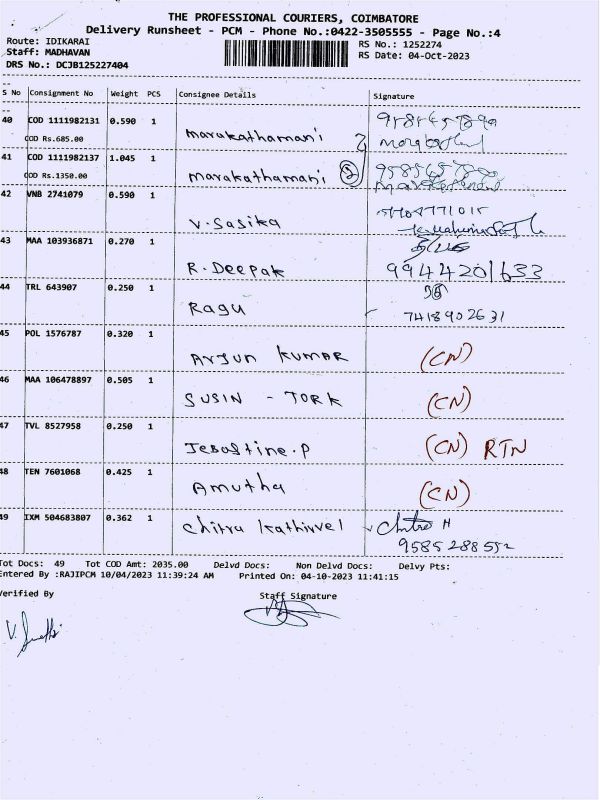 THE PROFESSIONAL COURIERS, COIMBATORE
Delivery Runsheet - PCM - Phone No.:0422-3505555 - Page No.:4
Route: IDIKARAI
RS No.: 1252274
Staff: MADHAVAN
RS Date: 04-Oct-2023
DRS No.: DCJB125227404
S No Consignment No Weight PCS Consignee Details Signature
40 COD 1111982131 0.590 1
COD Rs.685.00 marakathamani
41 COD 1111982137 1.045 1
COD Rs.1350.00 marakathamani 2
42 VNB 2741079 0.590 1
V. Sasika
43 MAA 103936871 0.270 1
R. Deepak 9944201633
44 TRL 643907 0.250 1
Ragu 7418902631
45 POL 1576787 0.320 1
Arjun Kumar (CN)
46 MAA 106478897 0.505 1
SUSIN - TORK (CN)
47 TVL 8527958 0.250 1
Jebastine.P (CN) RTN
48 TEN 7601068 0.425 1
Amutha (CN)
49 IXM 504683807 0.362 1
Chitra Kathirvel
9585288552
Tot Docs: 49 Tot COD Amt: 2035.00 Delvd Docs: Non Delvd Docs: Delvy Pts:
Entered By :RAJIPCM 10/04/2023 11:39:24 AM Printed On: 04-10-2023 11:41:15
Verified By Staff Signature